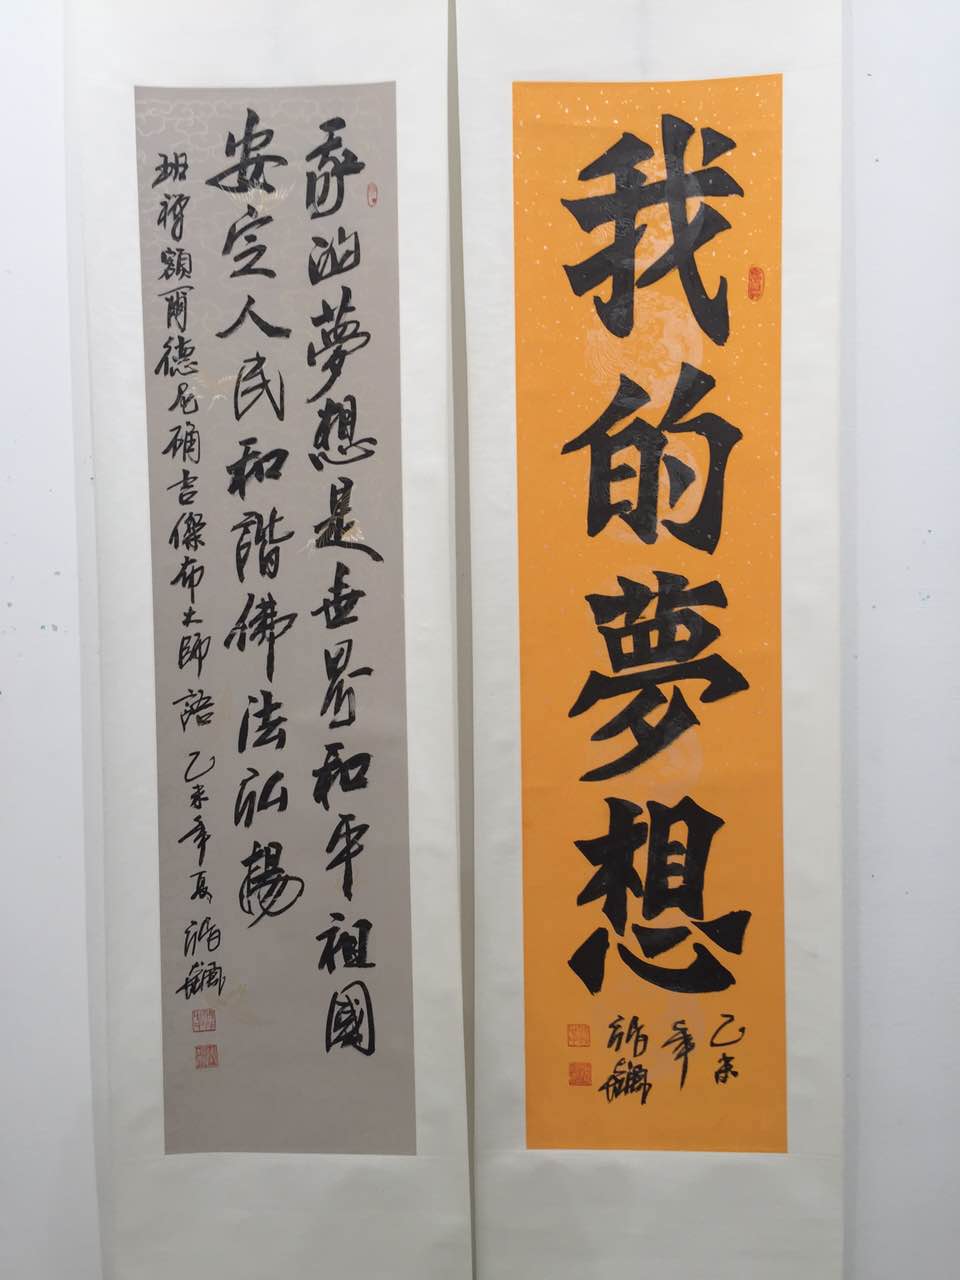 我的夢想
乙未
年
我的夢想是世界和平祖國
安定人民和諧佛法弘揚
班禪額爾德尼確吉傑布大師語 乙未年夏